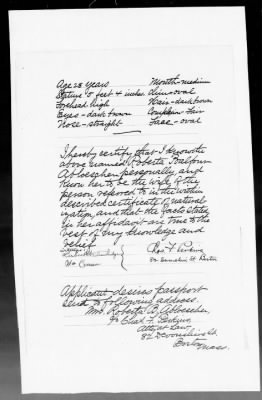 Age 28 years
Mouth-medium
Stature 5 feet 4 inches
Chin-oval
Forehead high
Hair-dark brown
Eyes-dark brown
Complex-Fair
Nose-straight
Face-oval
I hereby certify that I know the
above named Roberta Balfour
personally, and
know her to be the wife of the
person referred to in the within
described certificate of natural
ization, and that the facts stated
in her affidavit are true to the
best of my knowledge and
belief.
Chas. F. Perkins
Boston
Applicant desires passport
sent to following address.
Mrs. Roberta B.
c/o Chas. F. Perkins,
Atty at Law,
82 Devonshire St.
Boston
Mass.